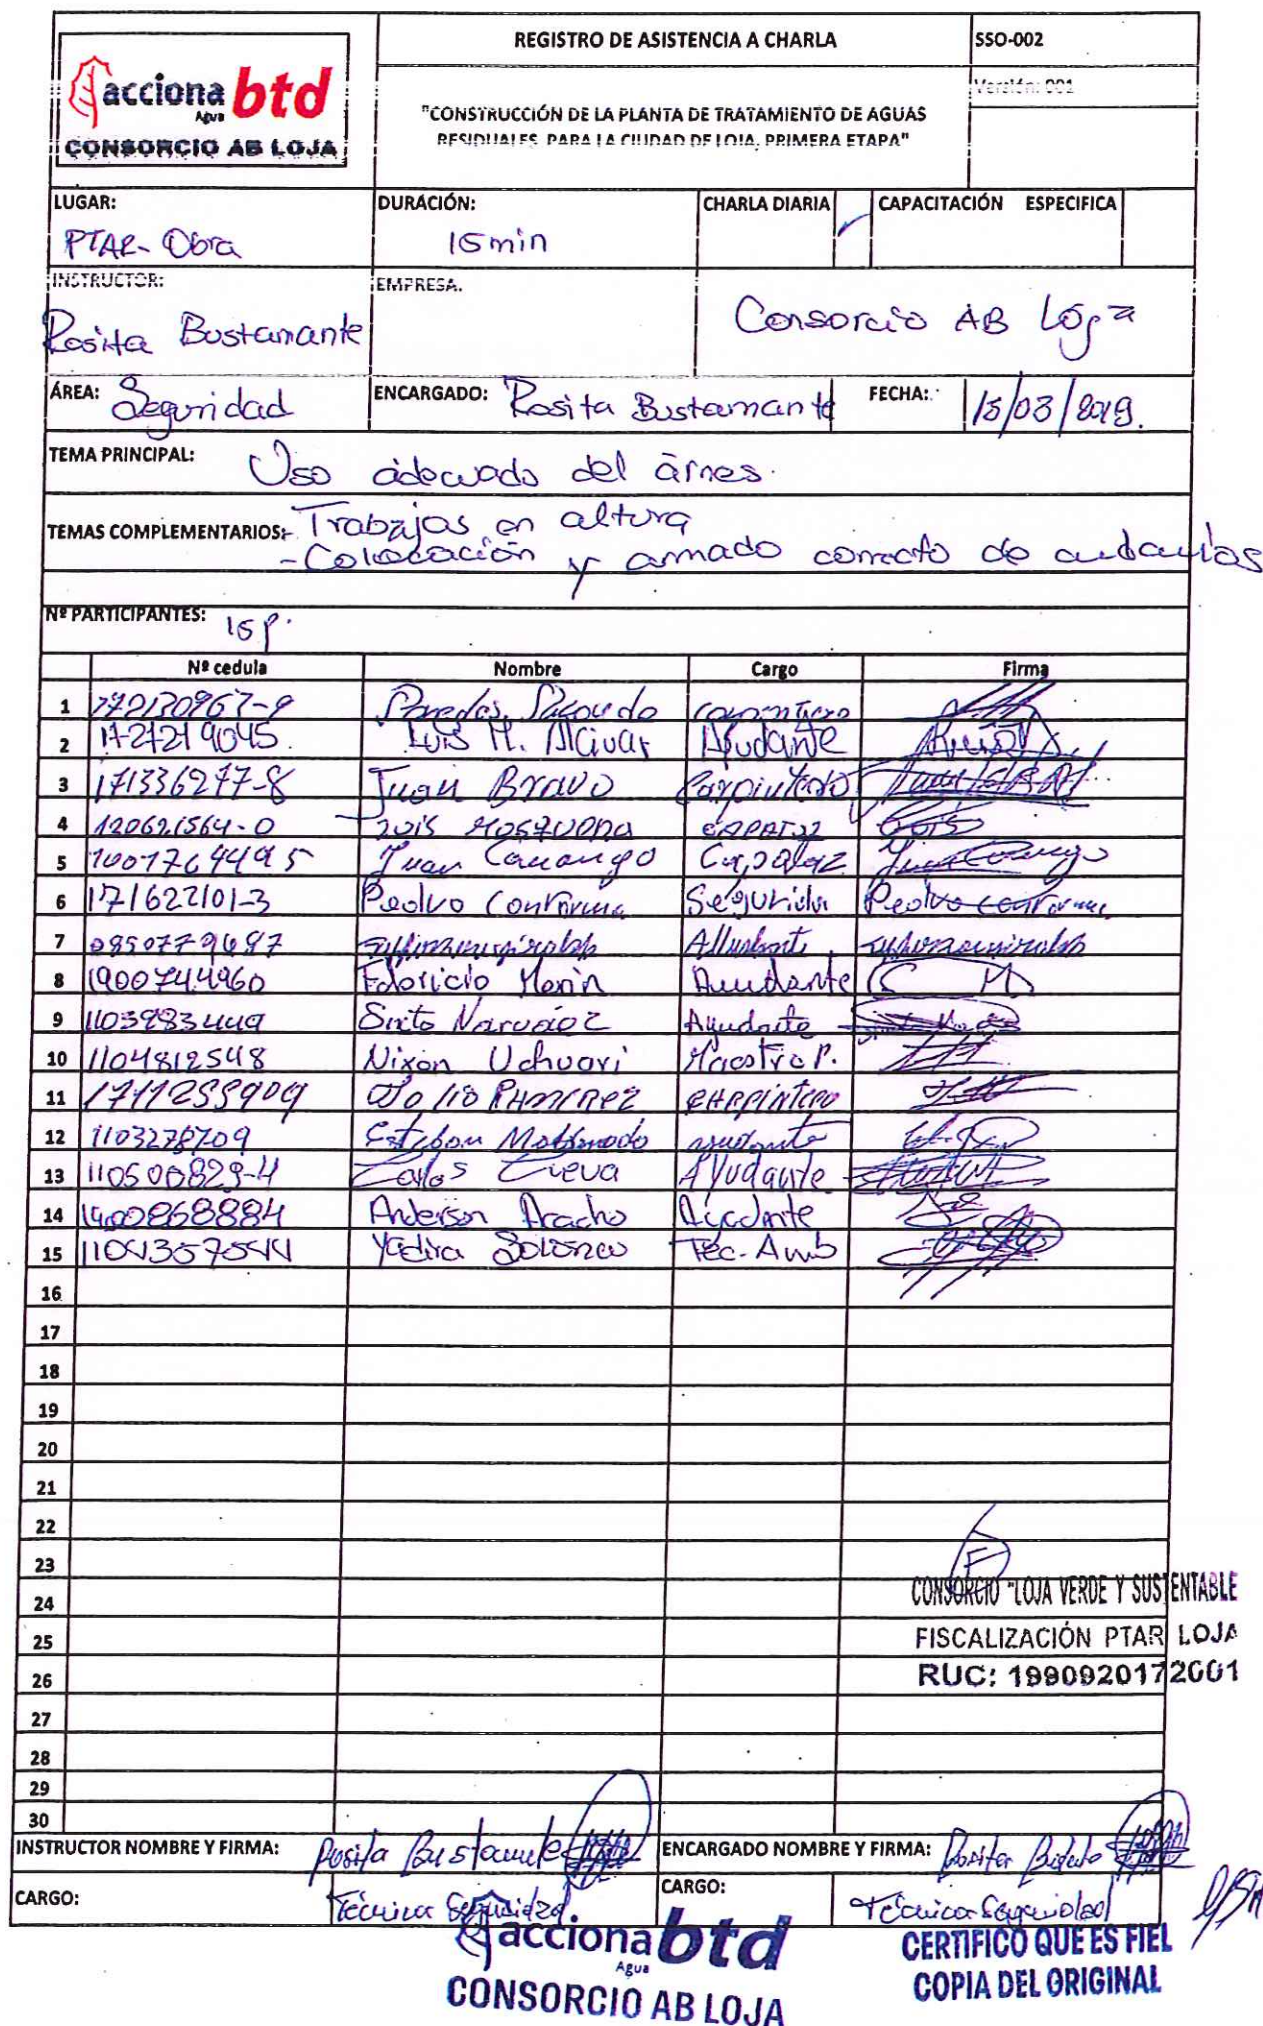 REGISTRO DE ASISTENCIA A CHARLA
SSO-002
acciona btd
Agua
CONSORCIO AB LOJA
Versión: 001
"CONSTRUCCIÓN DE LA PLANTA DE TRATAMIENTO DE AGUAS
RESIDUALES PARA LA CIUDAD DE LOJA, PRIMERA ETAPA"
LUGAR: PTAR- Obra
DURACIÓN: 15min
CHARLA DIARIA
CAPACITACIÓN ESPECIFICA
INSTRUCTOR: Rosita Bustamante
EMPRESA. Consorcio AB Loja
ÁREA: Seguridad
ENCARGADO: Rosita Bustamante
FECHA: 15/03/2019.
TEMA PRINCIPAL: Uso adecuado del arnes.
TEMAS COMPLEMENTARIOS:- Trabajos en altura
- Colocación y armado correcto de andamios
Nº PARTICIPANTES: 15 p.
Nº cedula Nombre Cargo Firma
1 Paredes carpintero
2 1721219045 Luis H. Alcivar Ayudante
3 171336277-8 Juan Bravo Carpintero
4 120621564-0 Luis CAPATAZ Luis
5 1001764495 Juan Capataz
6 171622101-3 Pedro Conforme Seguridad Pedro Conforme
7 0850779697
8 1900744960 Fabricio Marin Ayudante
9 1103983449 Sixto Narvaez Ayudante
10 1104812548 Nixon Uchuari Maestro P.
11 1711255909 Julio RAMIREZ CARPINTERO
12 1103278709 Esteban Maldonado ayudante
13 110500829-4 Carlos Cueva Ayudante
14 1900868884 Anderson Ayudante
15 1104357544 Yadira Solorzano Tec. Amb
16
17
18
19
20
21
22
23
24
25
26
27
28
29
30
CONSORCIO "LOJA VERDE Y SUSTENTABLE
FISCALIZACIÓN PTAR LOJA
RUC: 1990920172001
INSTRUCTOR NOMBRE Y FIRMA: Rosita Bustamante
ENCARGADO NOMBRE Y FIRMA: Rosita
CARGO: Técnica Seguridad
CARGO: Técnica Seguridad
acciona btd
Agua
CONSORCIO AB LOJA
CERTIFICO QUE ES FIEL
COPIA DEL ORIGINAL